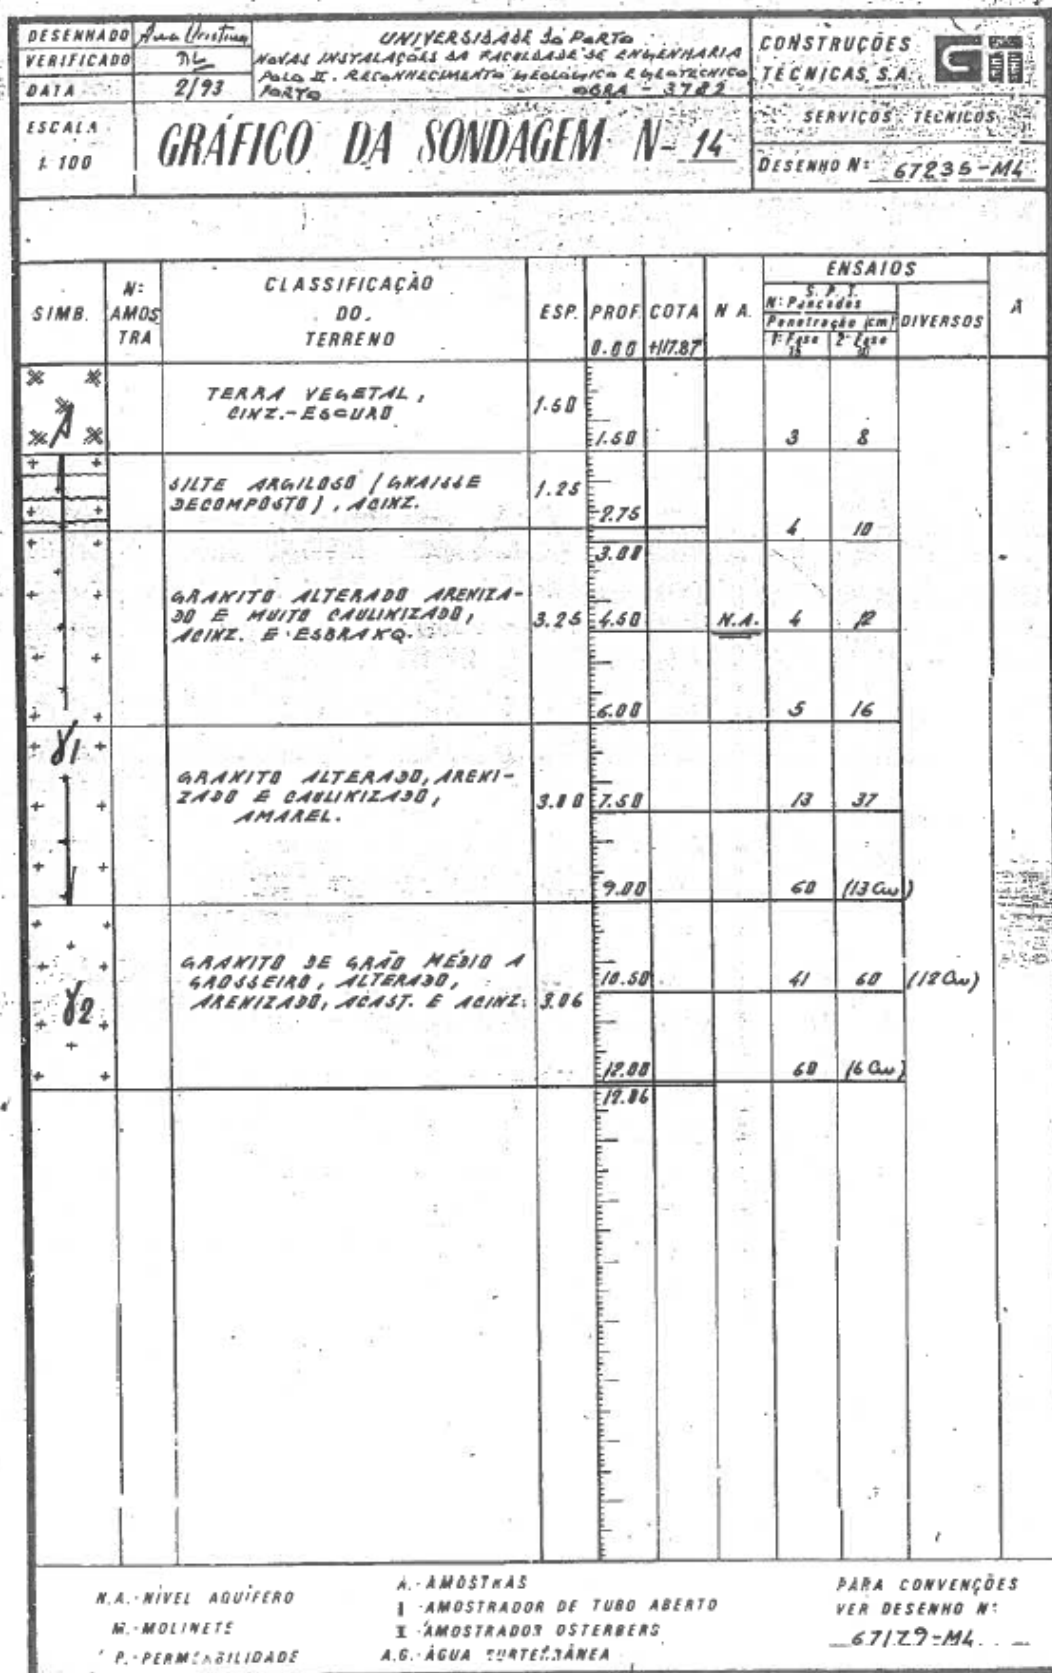 DESENHADO Ana Cristina
VERIFICADO
DATA 2/93
UNIVERSIDADE DO PORTO
NOVAS INSTALAÇÕES DA FACULDADE DE ENGENHARIA
POLO II. RECONHECIMENTO GEOLÓGICO E GEOTÉCNICO
PORTO OBRA - 3782
CONSTRUÇÕES
TÉCNICAS, S.A.
ESCALA
1:100
GRÁFICO DA SONDAGEM Nº 14
SERVIÇOS TÉCNICOS
DESENHO Nº 67235-M4
SIMB.
Nº AMOSTRA
CLASSIFICAÇÃO
DO
TERRENO
ESP. PROF. COTA N A.
0.00 +117.87
ENSAIOS
S. P. T.
Nº Pancadas
Penetração (cm)
1ª Fase 2ª Fase
15 30
DIVERSOS
A
TERRA VEGETAL,
CINZ.-ESCURO
1.50 1.50 3 8
A
SILTE ARGILOSO (GNAISSE
DECOMPOSTO), ACINZ.
1.25 2.75 4 10
3.00
GRANITO ALTERADO ARENIZA-
DO E MUITO CAULINIZADO,
ACINZ. E ESBRANQ.
3.25 4.50 N.A. 4 12
6.00 5 16
γ1
GRANITO ALTERADO, ARENI-
ZADO E CAULINIZADO,
AMAREL.
3.00 7.50 13 37
9.00 60 (13 cm)
GRANITO DE GRÃO MÉDIO A
GROSSEIRO, ALTERADO,
ARENIZADO, ACAST. E ACINZ.
3.06 10.50 41 60 (12 cm)
γ2
12.00 60 (6 cm)
12.06
N.A.-NÍVEL AQUÍFERO
M.-MOLINETE
P.-PERMEABILIDADE
A.-AMOSTRAS
I -AMOSTRADOR DE TUBO ABERTO
I -AMOSTRADOR OSTERBERG
A.G.-ÁGUA SUBTERRÂNEA
PARA CONVENÇÕES
VER DESENHO Nº
67179-M4